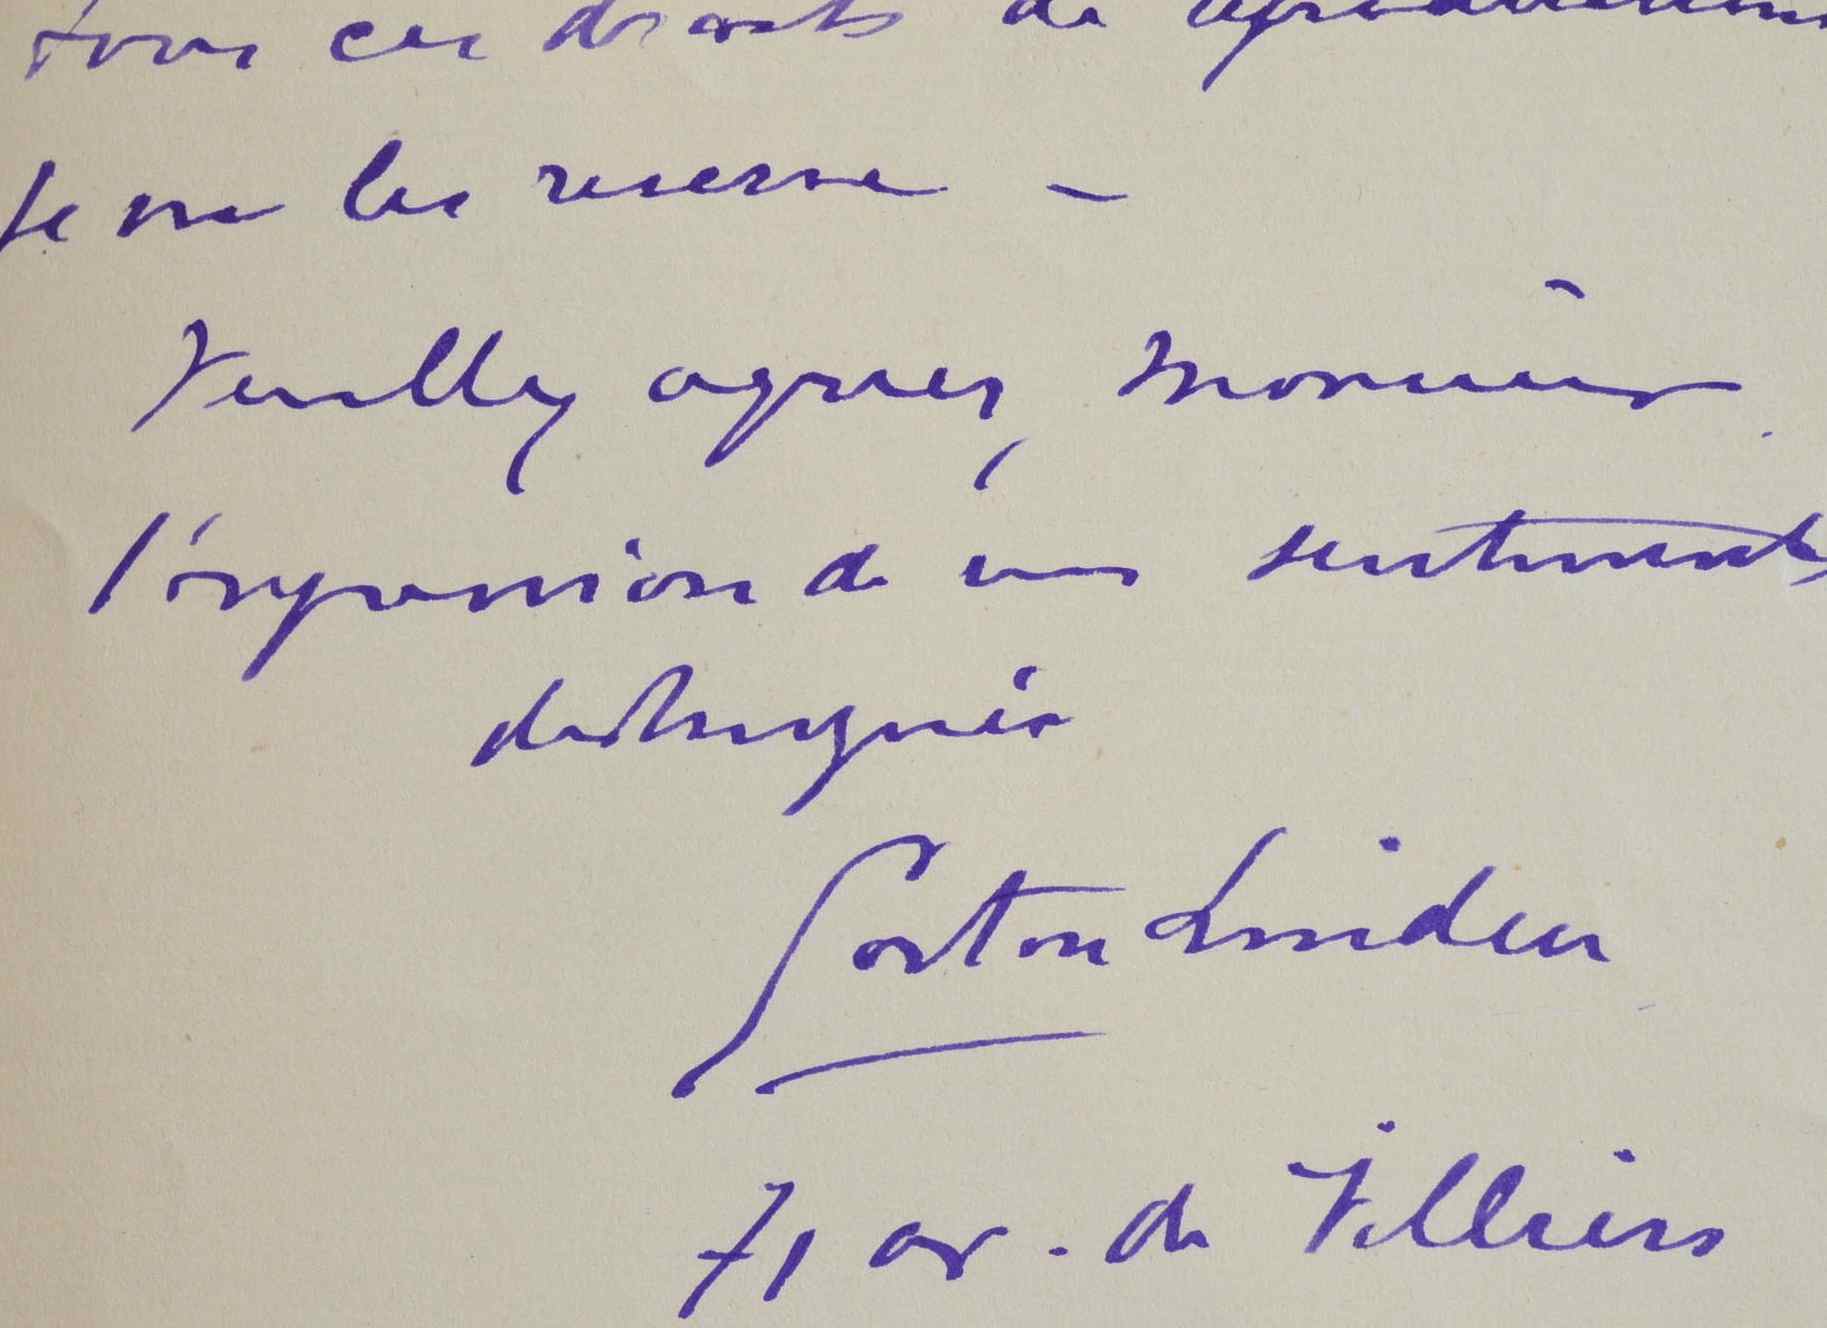 tous ces droits de reproduction
je me les réserve –
Veuillez agréer, Monsieur
l'expression de mes sentiments
distingués
Gaston Linden
71 av. de Villiers